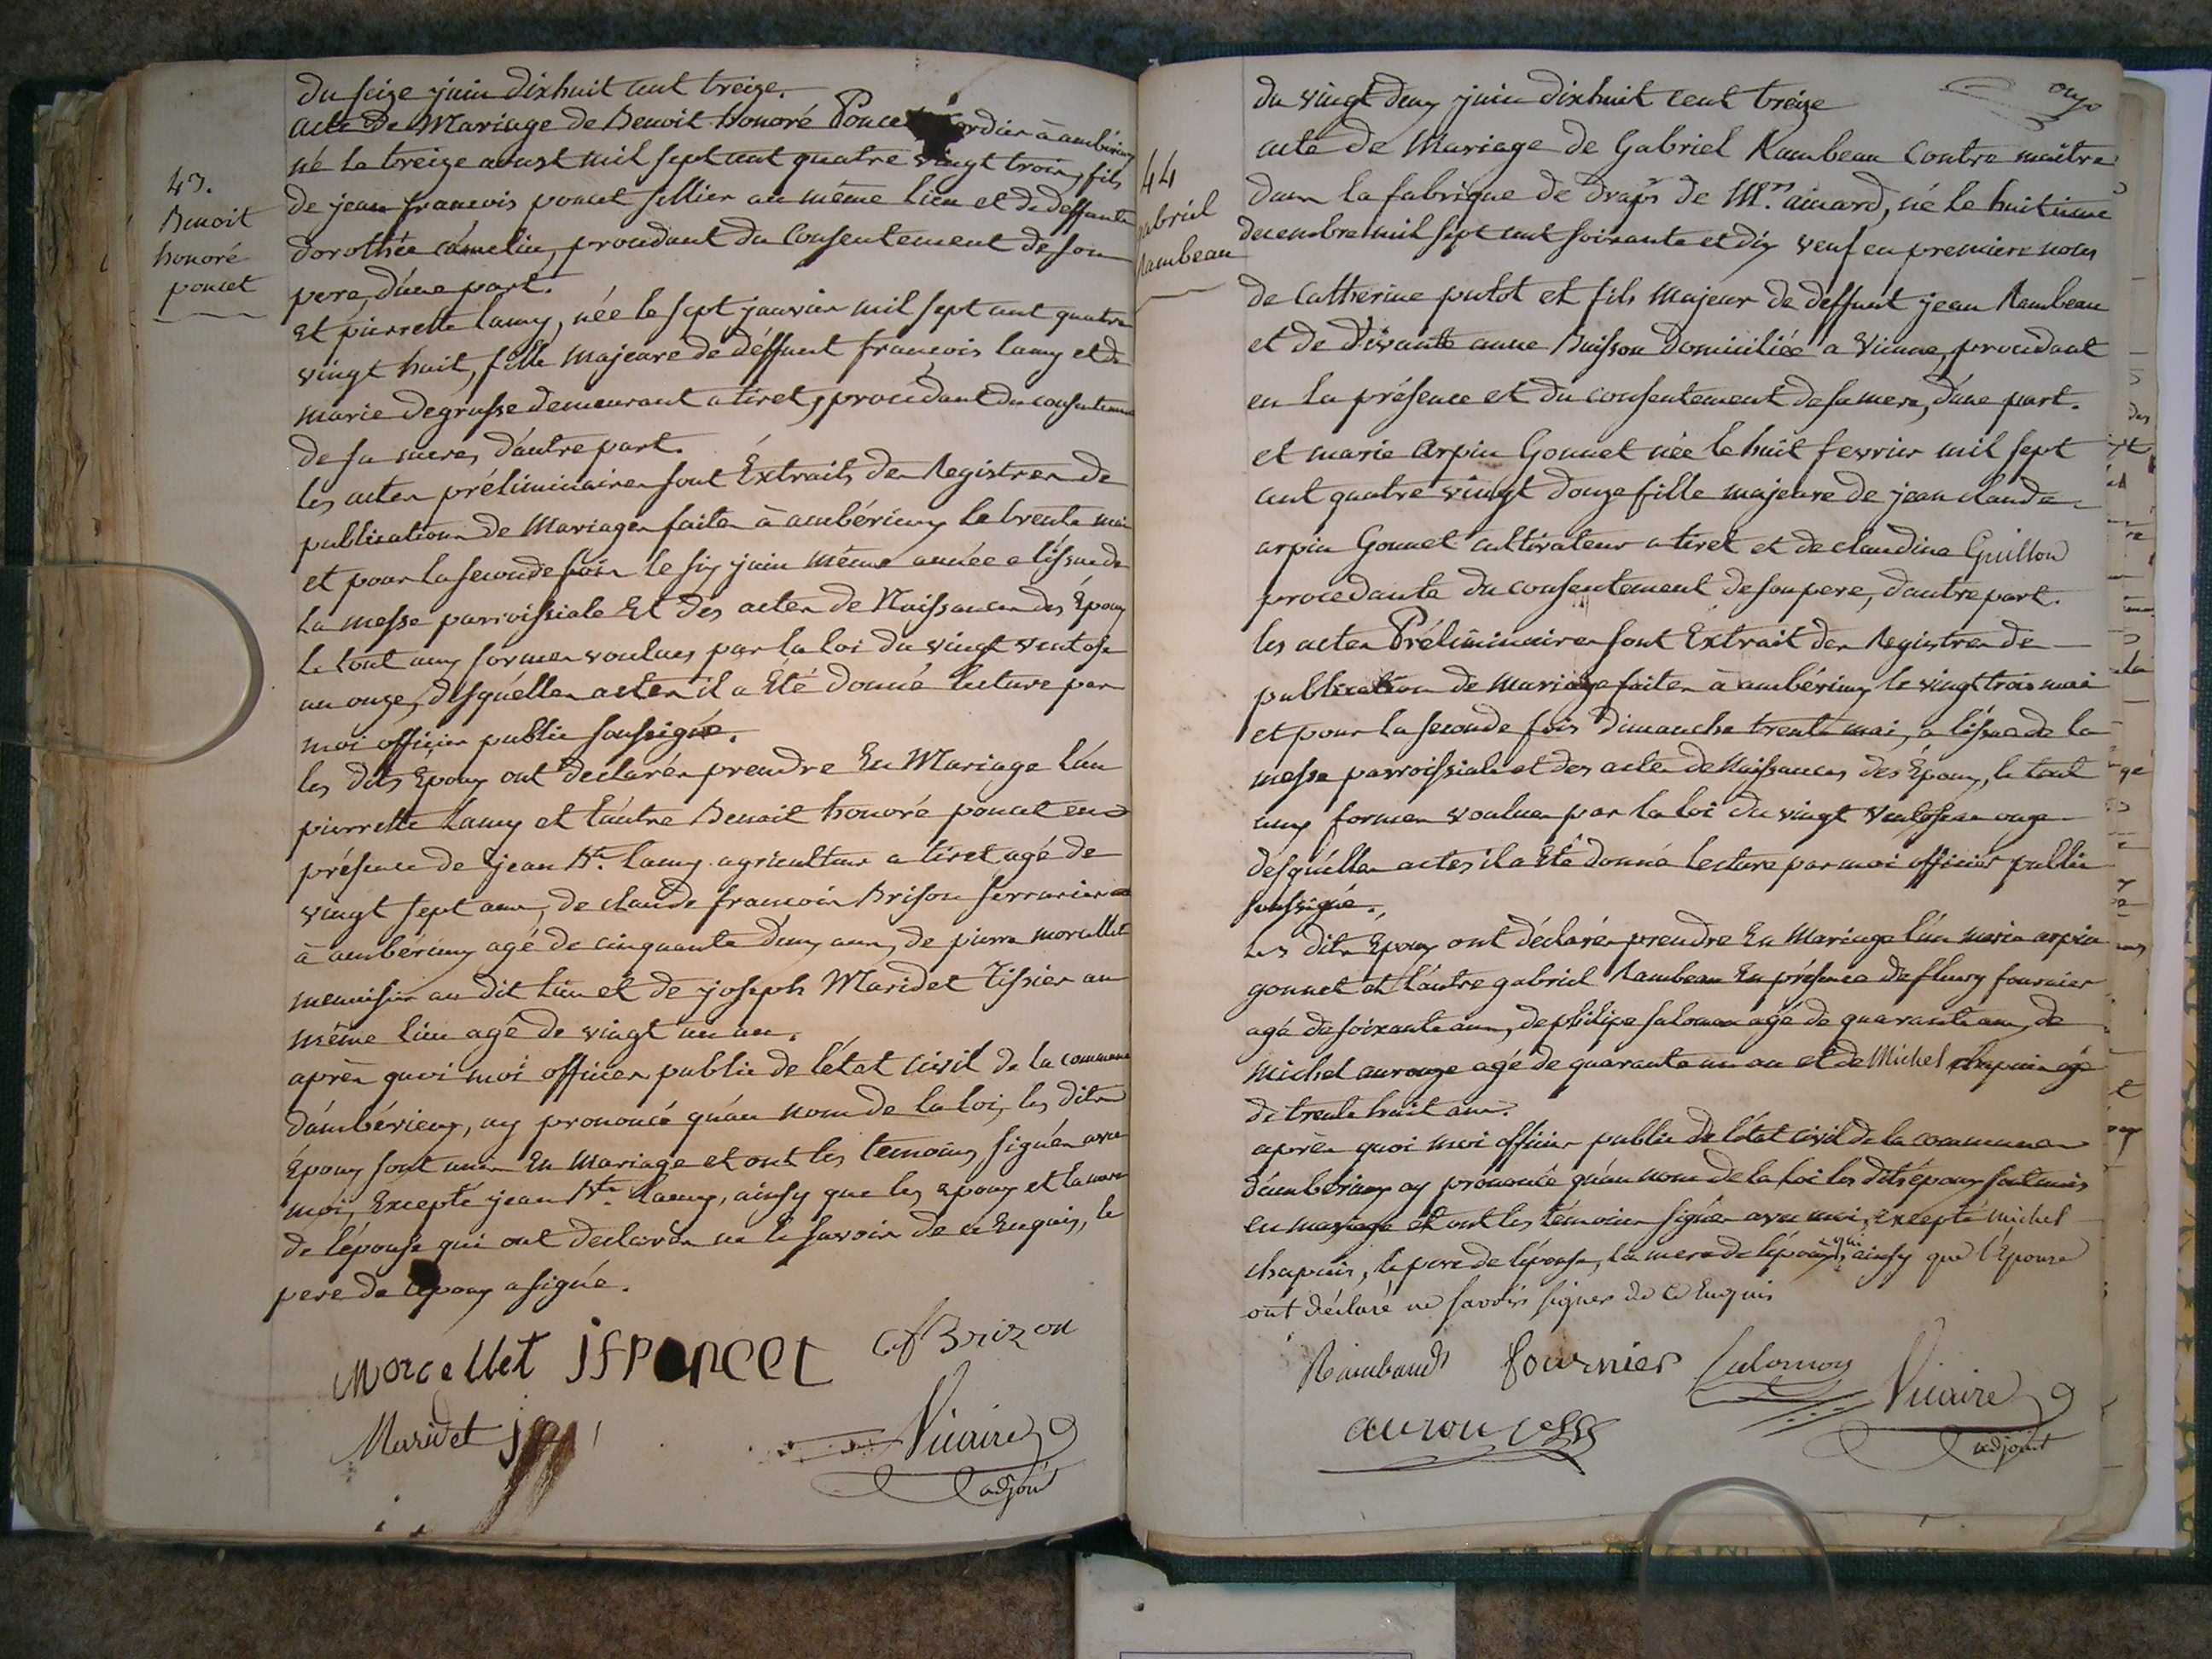 43.
Benoit
honoré
poncet
du seize juin dixhuit cent treize.
acte de Mariage de Benoit honoré Poncet cordier à ambérieux
né le treize aoust mil sept cent quatre vingt trois, fils
de jean francois poncet sellier au même lieu et de deffunte
dorothée camelin, procedant du Consentement de son
pere, d'une part.
Et pierrette lamy, née le sept janvier mil sept cent quatre
vingt huit, fille Majeure de déffunt francois lamy et de
marie degrusse demeurant a tiret, procédant du consentement
de sa mere, d'autre part.
les actes préliminaires sont Extraits des Registres de
publications de Mariages faites à ambérieux le trente mai
et pour la seconde fois le six juin même année a l'issue de
la messe parroissiale Et des actes de Naissances des Epoux
le tout aux formes voulues par la loi du vingt ventose
an onze, desquélles actes il a Eté donné lecture par
moi officier public soussigné.
les dits Epoux ont declarés prendre En Mariage l'un
pierrette lamy et l'autre Benoit honoré poncet en
présence de jean Bte. lamy agriculteur a tiret agé de
vingt sept ans, de claude francois Brison serrurier
à ambérieux agé de cinquante deux ans, de pierre morcellet
menuisier au dit lieu et de joseph Maridet Tissier au
même lieu agé de vingt un an.
aprés quoi moi officier public de l'état civil de la commune
d'ambérieux, ay prononcé qu'au nom de la loi, les dits
Epoux sont unis En Mariage et ont les temoins signés avec
moi, Excepté jean Bte. lamy, ainsy que les epoux et la mere
de l'épouse qui ont declarés ne le savoir de ce Enquis, le
pere de l'epoux a signé.
Morcellet jfponcet Cf Brizon
Maridet
Vicaire
adjoint
44
gabriel
Rambeau
du vingt deux juin dixhuit cent treize
onze
acte de Mariage de Gabriel Rambeau Contre maître
dans la fabrique de draps de Mrs ainard, né le huitieme
decembre mil sept cent soixante et dix veuf en premiere noces
de Catherine putot et fils Majeur de deffunt jean Rambeau
et de Vivante anne Buisson domiciliée a Vienne, procedant
en la présence et du consentement de sa mere, d'une part.
et marie arpin Gonnet née le huit fevrier mil sept
cent quatre vingt douze fille majeure de jean claude
arpin Gonnet cultivateur a tiret et de claudine Guillon
procedante du consentement de son pere, d'autre part.
les actes Préliminaires sont Extrait des Registres de
publication de mariage faites à ambérieux le vingt trois mai
et pour la seconde fois dimanche trente mai, a l'issue de la
messe parroissiale et des actes de Naissances des Epoux, le tout
aux formes voulues par la loi du vingt Ventose an onze
desquélles actes il a Eté donné lecture par moi officier public
soussigné.
les dits Epoux ont déclarés prendre En Mariage l'un marie arpin
gonnet et l'autre gabriel Rambeau En présence de fleury fournier
agé de soixante ans, de philipe salomon agé de quarante ans, de
Michel aurouze agé de quarante un an et de Michel chapuis agé
de trente huit ans.
aprés quoi moi officier public de l'état civil de la commune
d'ambérieux ay prononcé qu'au nom de la loi les dits époux sont unis
en mariage et ont les témoins signés avec moi, excepté michel
chapuis, le pere de l'épouse, la mere de l'époux, qui ainsy que l'Epouse
ont déclaré ne savoir signer de ce Enquis
Rambaud fournier Salomon
Vicaire
adjoint